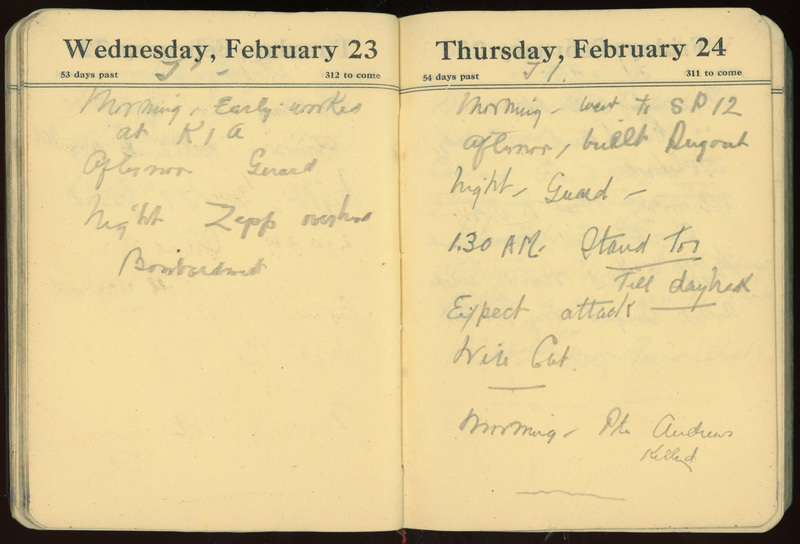 Wednesday, February 23
53 days past 312 to come
Morning, Early. works
at K 1 A
Afternoon Guard
Night Zepp overhead
Bombardment
Thursday, February 24
54 days past 311 to come
Morning - went to S P 12
Afternoon, built Dugout
Night, Guard -
1.30 A.M. Stand to
Till daybreak
Expect attack
Wire Cut.
Morning - Pte Andrews
Killed